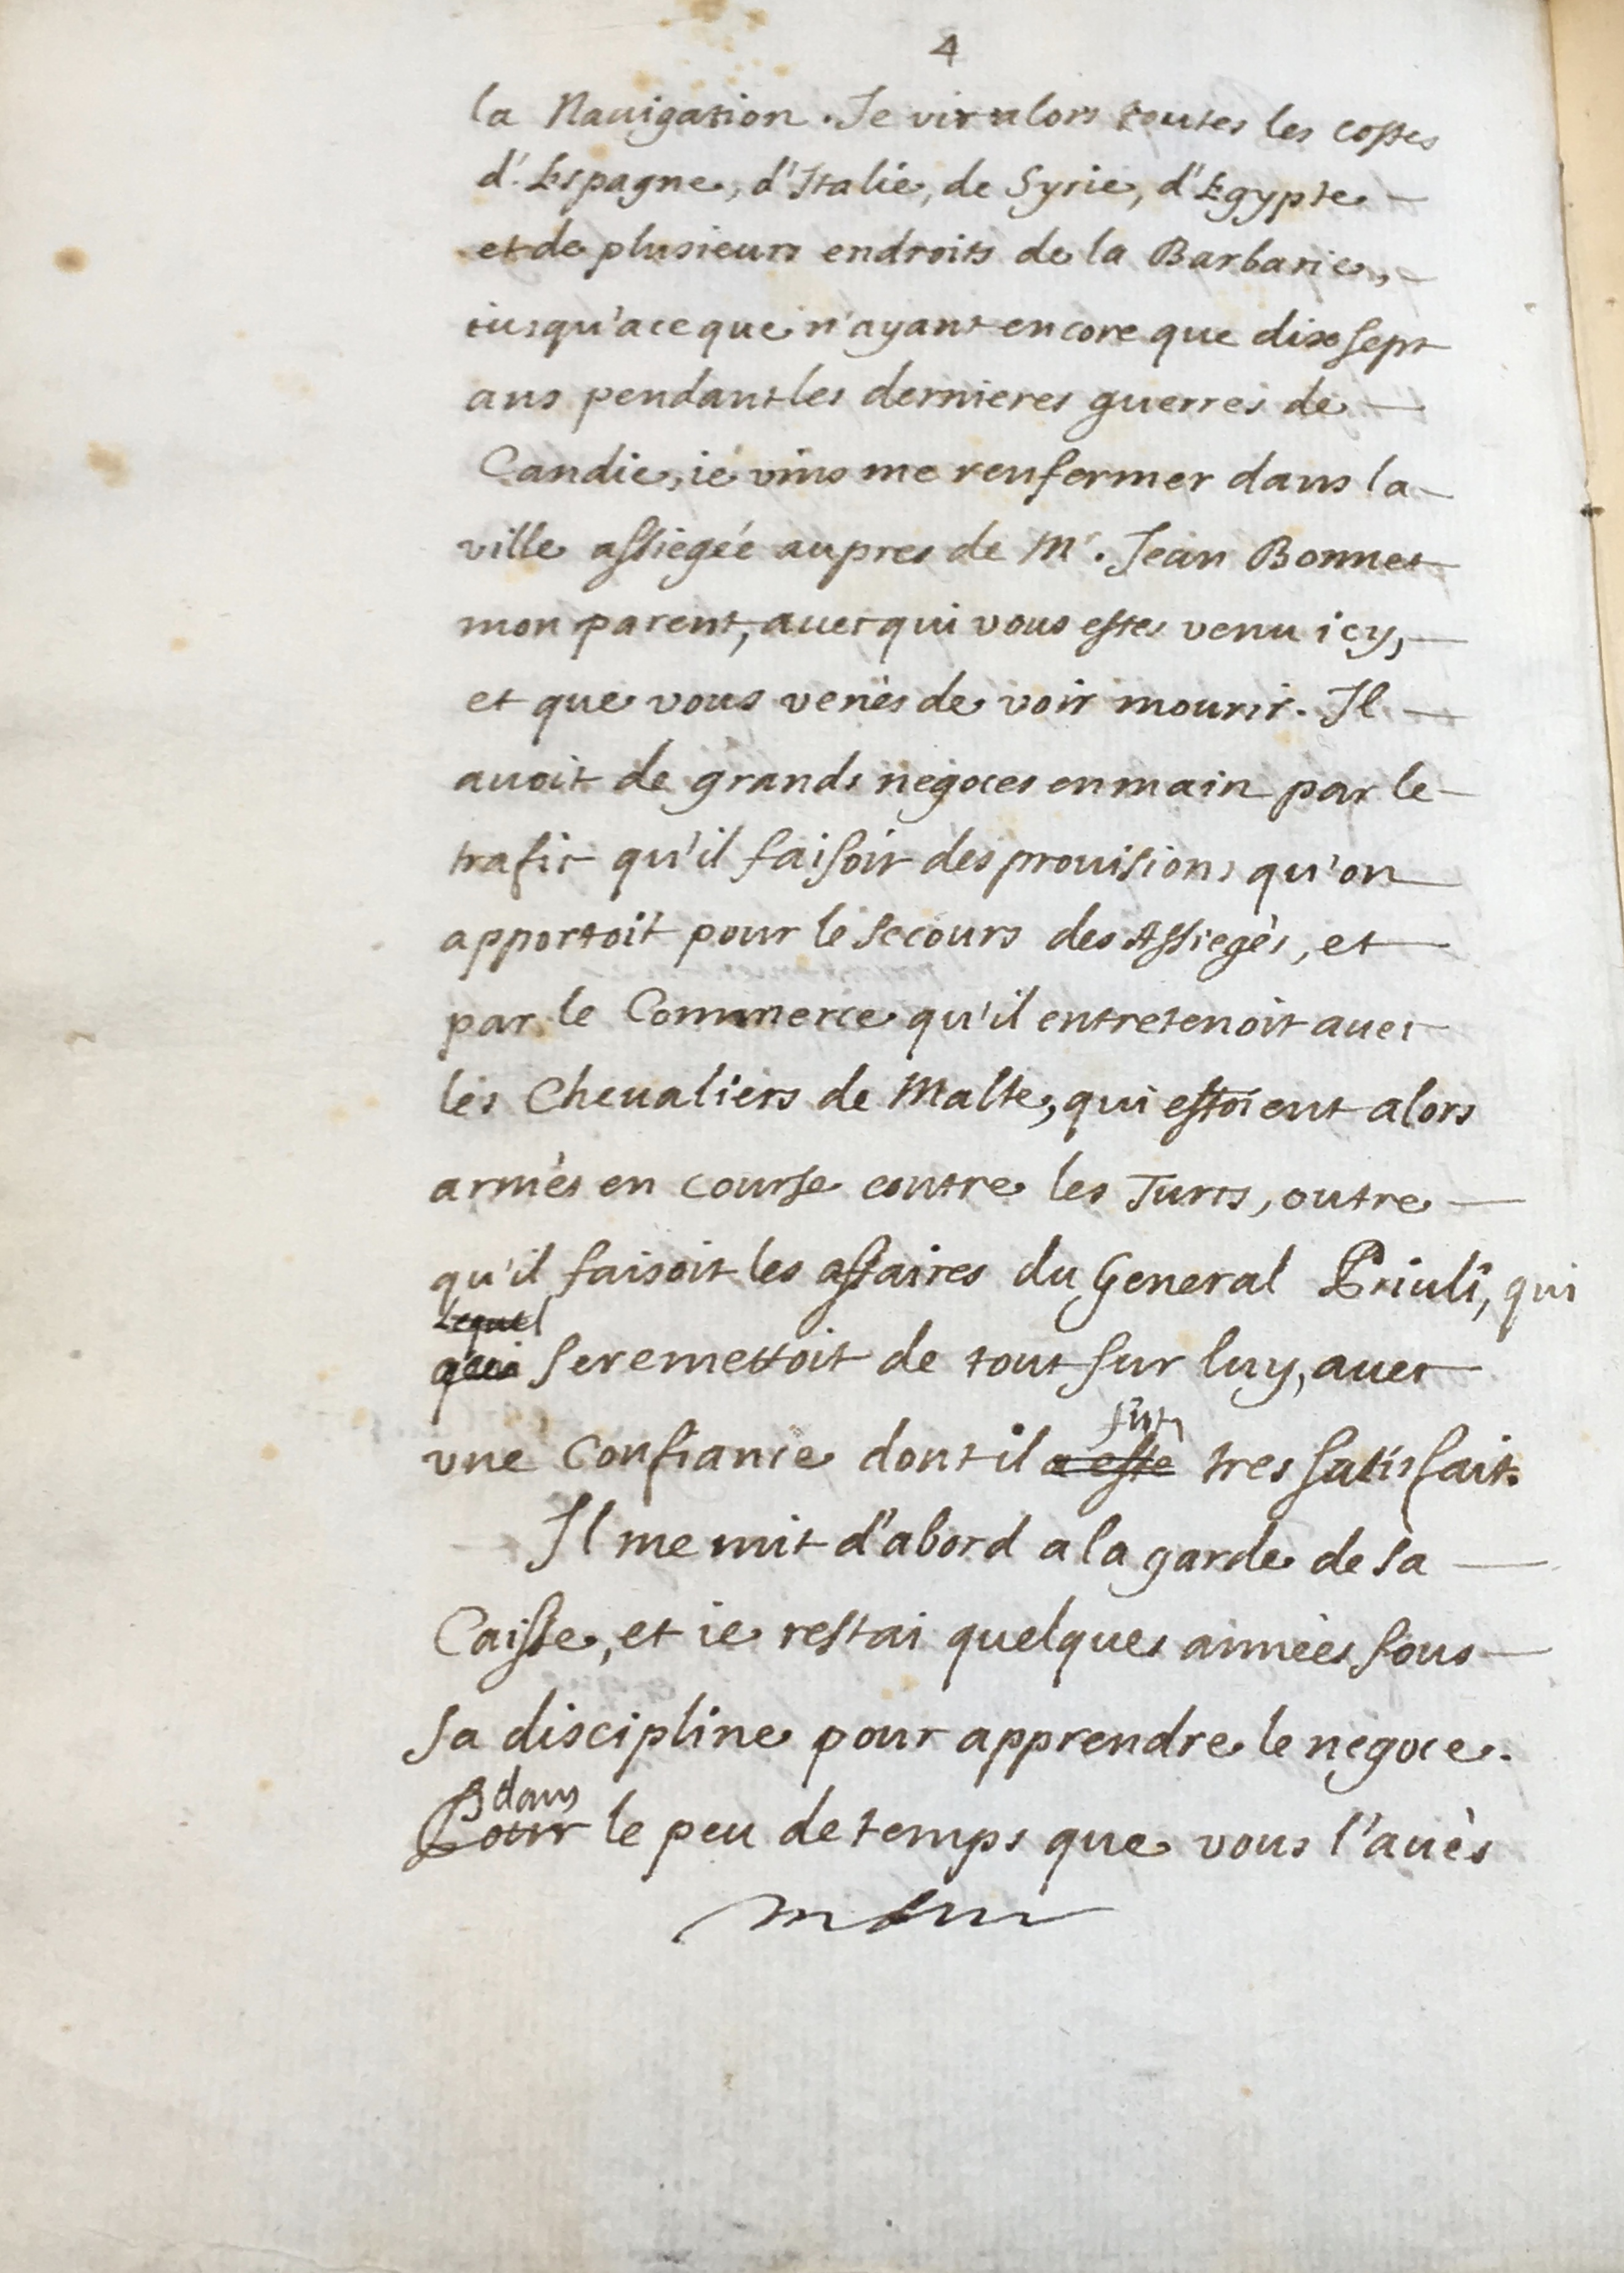 4
la Nauigation. Je vis alors toutes les costes
d'Espagne, d'Italie, de Syrie, d'Egypte
et de plusieurs endroits de la Barbarie,
iusqu'a ce que n'ayant encore que dix sept
ans pendant les dernieres guerres de
Candie, ie vins me renfermer dans la
ville assiegée aupres de Mr. Jean Bonnet
mon parent, auec qui vous estes venu icy,
et que vous venés de voir mourir. Il
auoit de grands negoces en main par le
trafic qu'il faisoit des prouisions qu'on
apportoit pour le secours des Assiegés, et
par le Commerce qu'il entretenoit auec
les Cheualiers de Malte, qui estoient alors
armés en course contre les Turcs, outre
qu'il faisoit les affaires du General Priuli, qui
lequel
qui se remettoit de tout sur luy, auec
fut
vne confiance dont il a esté tres satisfait.
Il me mit d'abord a la garde de sa
Caisse, et ie restai quelques années sous
sa discipline pour apprendre le negoce.
dans
Pour le peu de temps que vous l'aués